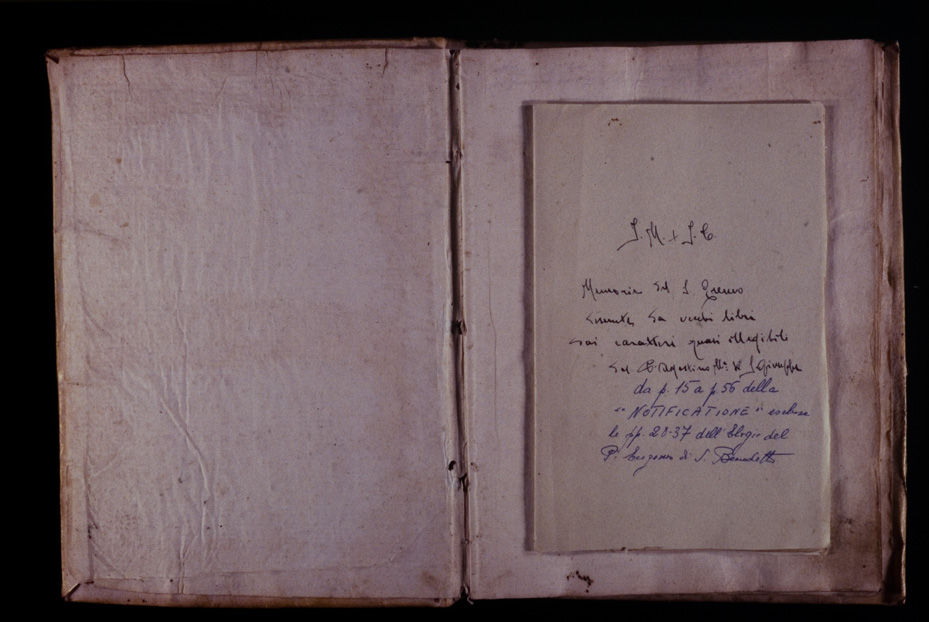 J. M. + J. C.
Memoria del S. Eremo
da vechi libri
dai caratteri quasi illegibili
del di S. Giuseppe
da p. 15 a p. 56 della
"NOTIFICATIONE" escluse
le pp. 28-37 dell'Elogio del
P. di S. Benedetto